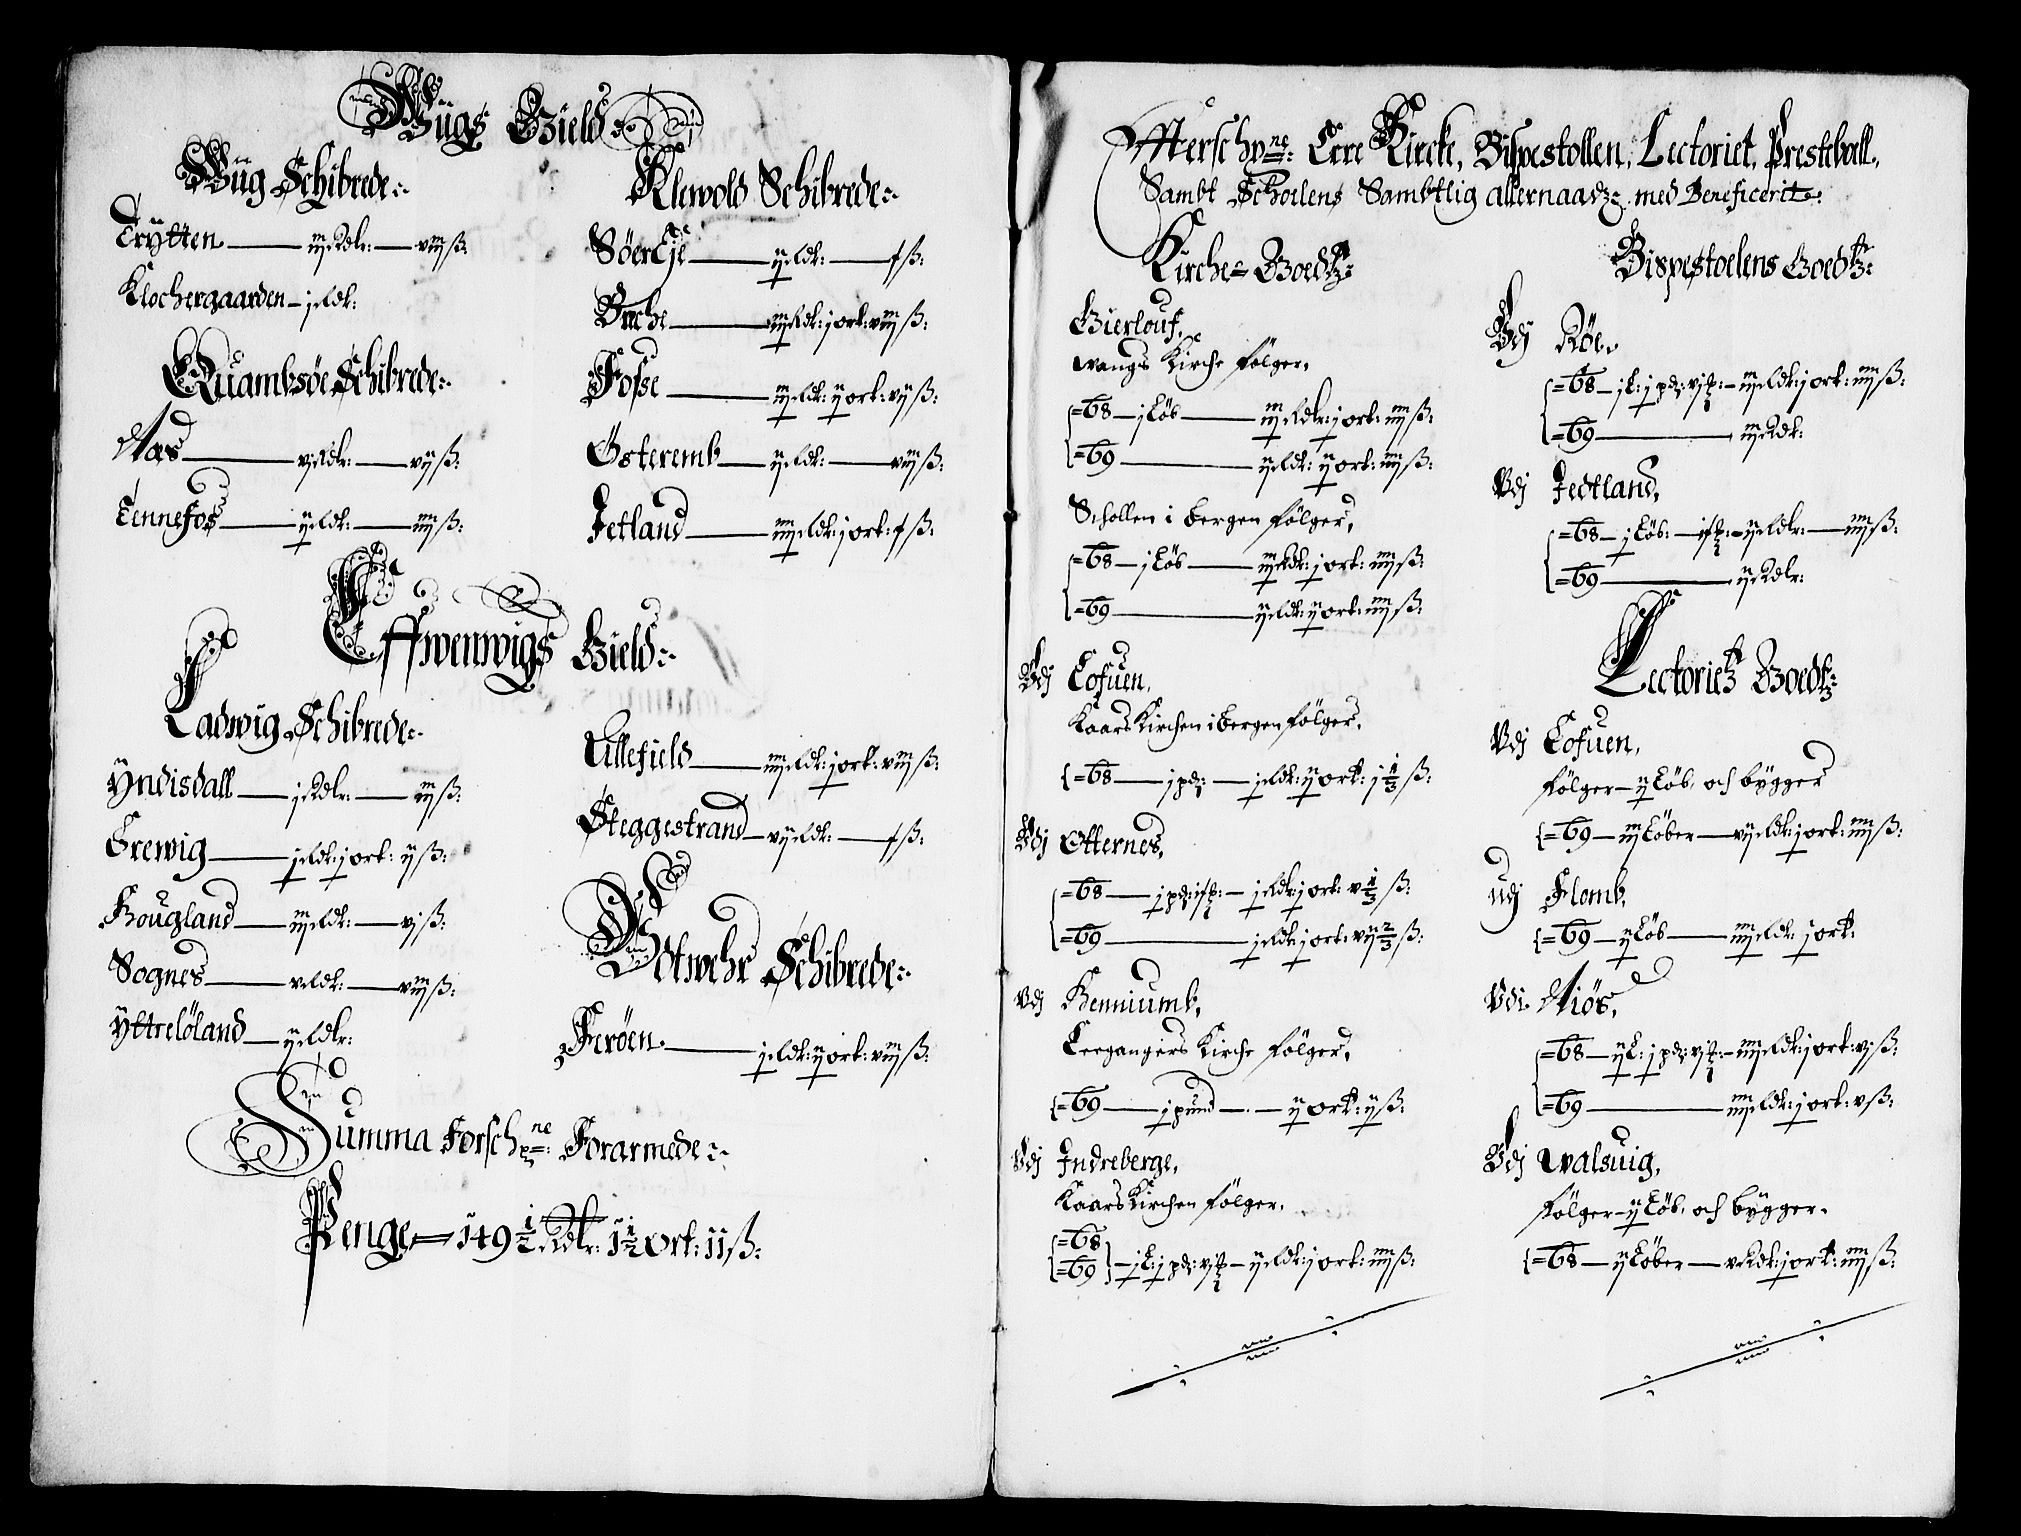 Wiigs Gield
Wiig Schibrede
Trÿtten — iij Rdlr: — viij ß:
Klochergaarden — j Rdr:
Quambsöe Schibrede
Næs — vj Rdlr: — vij ß:
Tennefos — ij Rdr: — iiij ß:
Klewold Schibrede
Söereje — ij Rdr: — ß:
Breche — iij Rdr: j ort: viij ß:
Fosse — iij Rdr: ij ort: vij ß:
Österemb — ij Rdr: — viij ß:
Jetland — iiij Rdr: j ort: ß:
Effwenwigs Gield
Ladwig Schibrede
Ÿndisdall — j Rdlr: — iij ß:
Crewig — j Rdr: j ort: ij ß:
Hougland — iij Rdr: — vj ß:
Sognes — v Rdr: — viij ß:
Ÿttrelöland — ij Rdlr:
Ullefield — iiij Rdr: j ort: viij ß:
Steggestrand — vij Rdr: — ß:
Schibrede
Feröen — j Rdr: ij ort: viij ß:
Summa Forschne: Forarmede
Penge — 149 1/2 Rdlr: 1 1/2 Ort: 11 ß:
Effterschne: Erre Kircke, Bispestollen, Lectoriet, Presteboell,
Sambt Scholens Sambtlig allernaadz: med Beneficerit:
Kirche Goedtz
Gierlouf,
wangs Kirche fölger,
68 — j Löb — iij Rdlr: j ort: iiij ß:
69 — ij Rdr: ij ort: iiij ß:
Schollen i Bergen fölger,
68 — j Löb — iij Rdr: j ort: iiij ß:
69 — ij Rdr: ij ort: iiij ß:
Vdj Tofuen,
Kaars Kirchen i Bergen fölger,
68 — j pd: — j Rdr: ij ort: j 1/3 ß:
Vdj Otternes,
68 — j pd: — j Rdr: j ort: v 1/3 ß:
69 — j Rdr: j ort: vij 2/3 ß:
Vdj Henniumb,
Leegangers Kirche fölger,
69 — j pund — ij ort: ij ß:
Vdj Indreberge,
Kaars Kirchen fölger,
68
69 — j L: j pd: — ij Rdr: j ort: iiij ß:
Bispestoelens Goedtz
Vdj Röe,
68 — j L: j pd: — iij Rdr: j ort: iiij ß:
69 — iij Rdr:
Vdj Jedtland,
68 — j Löb: — ij Rdlr: — iiij ß:
69 — ij Rdlr:
Lectorietz Goedtz
Vdj Tofuen,
fölger — ij Löb, och bÿgger
69 — iij Löber — vij Rdr: j ort: iiij ß:
Udj Flomb,
69 — ij Löb — iiij Rdr: j ort:
Vdi Niös,
68 — ij L: j pd: — iiij Rdr: j ort: vj ß:
69 — iiij Rdr: j ort: v ß:
Vdj Walsuig,
fölger — ij Löb, och bÿgger.
68 — ij Löber — v Rdr: j ort: iiij ß: